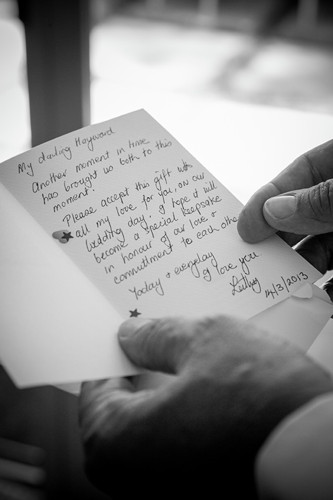 My darling Hayward
Another moment in time
has brought us both to this
moment.
Please accept this gift with
all my love for you, on our
wedding day. I hope it will
become a special keepsake
in honour of our love &
commitment to each othe
Today & everyday
I love you
14/3/2013